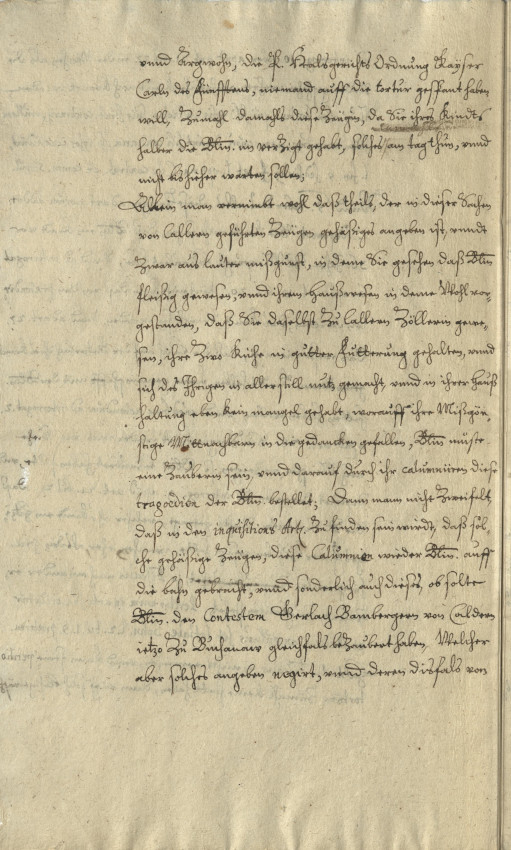 vnnd Argwohn, die P. Halsgerichts Ordnung Kayser
Carln des Fünfftens, niemand auff die tortur gespant haben
will, Zumahl damahls diese Zeugin, da Sie ihres Kindts
halber die Bltin. in verZigt gehabt, solches am tag thun, vnnd
nicht bis hieher warten sollen;
Allein man vernimbt wohl daß theils, der in dieser Sachen
von Callern geführten Zeugen gehäßiges angeben ist, vnndt
Zwar aus lauter mißgunst, in deme Sie gesehen daß Bltin
fleißig gewesen, vnnd ihrem Haußwesen in deme Wohl vor-
gestanden, daß Sie daselbst Zu Callern Zöllerin gewe-
sen, ihre Zwo Kühe in gutter Futterung gehalten, vnnd
sich des Ihrigen in aller still nutz gemacht, vnnd in ihrer Hauß
haltung eben kein mangel gehabt, worauff ihre Mißgön-
stige Mittnachbarn in die gedancken gefallen, Bltin müste
eine Zauberin sein, vnnd darauf durch ihr calumniiren diese
tragoedien der Bltin. bestellet; Dann mann nicht Zweifelt,
daß in den inquisitions Act. Zu finden sein wirdt, daß sol-
che gehäßige Zeugen, diese Calumnien wieder Bltin. auff
die bahn gebracht, vnnd sonderlich auch dieses, ob solte
Bltin. den Contestem Gerlach Bambergern von Caldern
ietzo Zu Buchenaw gleichfals beZaubert haben, Welcher
aber solches angeben negirt, vnnd deren disfals von